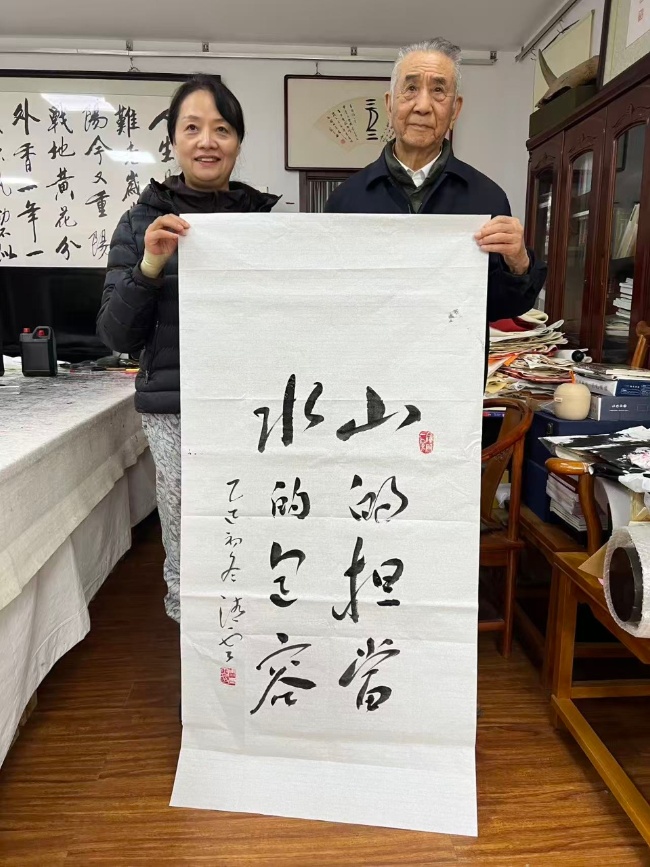 山的担當
水的包容
乙巳初冬
人生
難老歲
陽今又重陽
戰地黃花分
外香一年一